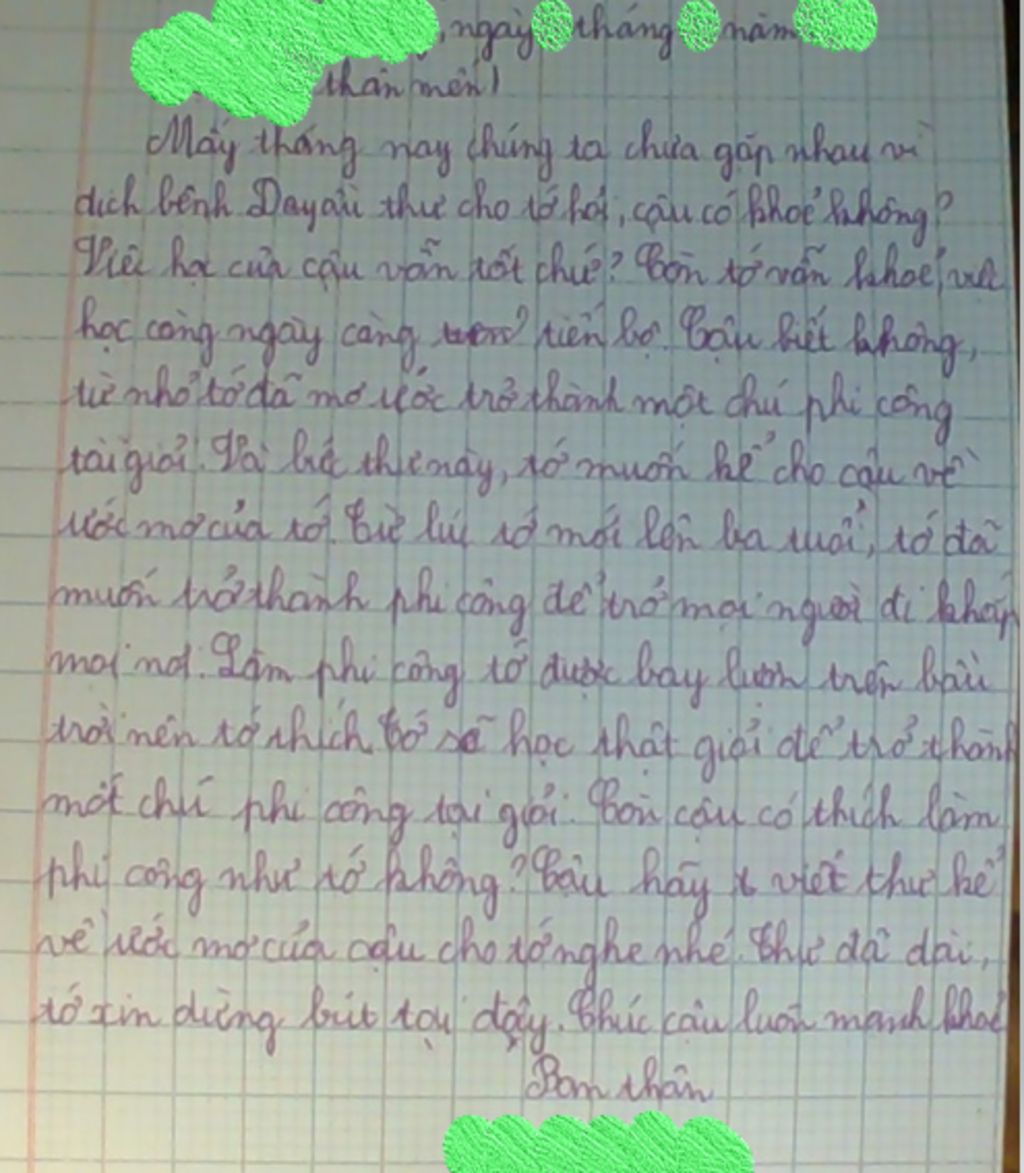 , ngày tháng năm
thân mến!
Mấy tháng nay chúng ta chưa gặp nhau vì
dịch bệnh Đầu thư cho tớ hỏi, cậu có khoẻ không?
Việc học của cậu vẫn tốt chứ? Còn tớ vẫn khoẻ, việc
học càng ngày càng tiến bộ. Cậu biết không,
từ nhỏ tớ đã mơ ước trở thành một chú phi công
tài giỏi. Và lá thư này, tớ muốn kể cho cậu về
ước mơ của tớ. Từ lúc tớ mới lên ba tuổi, tớ đã
muốn trở thành phi công để trở mọi người đi khắp
mọi nơi. Làm phi công tớ được bay lượn trên bầu
trời nên tớ thích. Tớ sẽ học thật giỏi để trở thành
một chú phi công tại giỏi. Còn cậu có thích làm
phi công như tớ không? Cậu hãy viết thư kể
về ước mơ của cậu cho tớ nghe nhé. Thư đã dài,
tớ xin dừng bút tại đây. Chúc cậu luôn mạnh khoẻ
Bạn thân